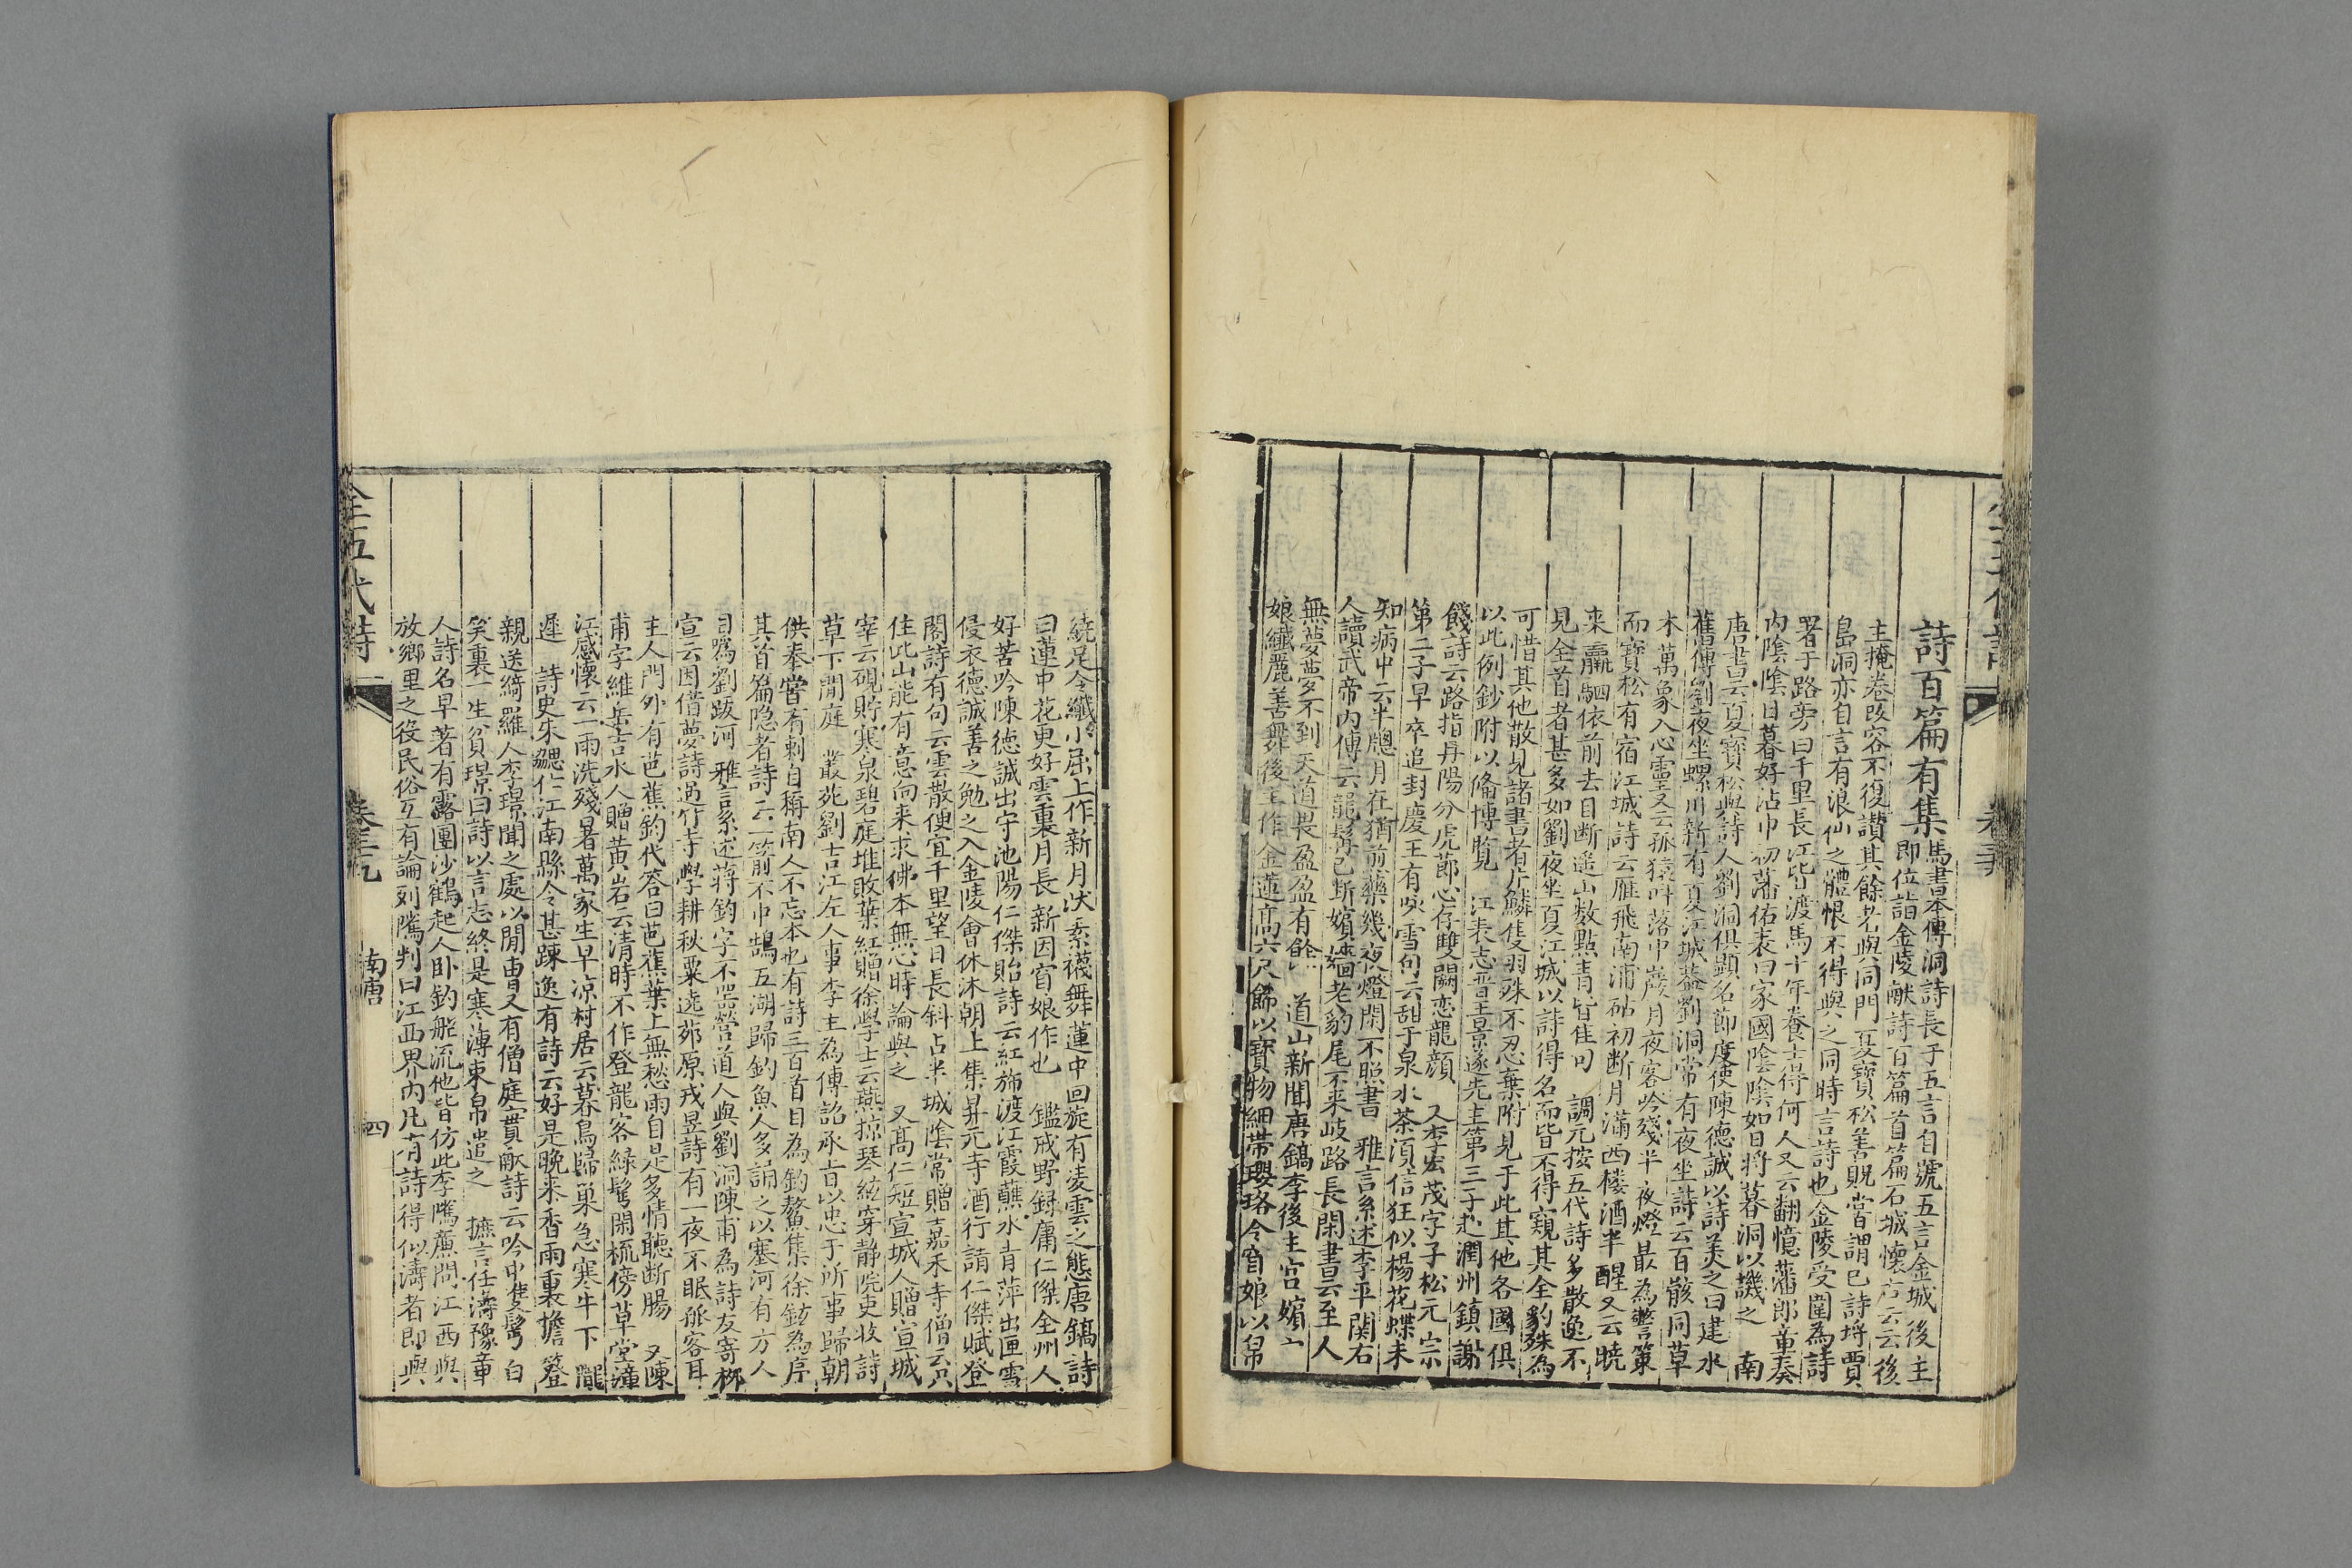 詩百篇有集馬書本傳洞詩長于五言自號五言金城後主
即位詣金陵献詩百篇首篇石城懷古云云後
主掩卷改容不復讀其餘若與同門夏寶松善貺嘗謂已詩埓賈
島洞亦自言有浪仙之體恨不得與之同時言詩也金陵受圍為詩
署于路旁曰千里長江皆渡馬十年養士得何人又云翻憶藩郎童奏
内陰陰日暮好沾巾初藩佑表曰家國陰陰如日將暮洞以譏之　南
唐書云夏寶松與詩人劉洞俱顯名節度使陳德誠以詩美之曰建水
舊傳劉夜坐螺川新有夏江城蓋劉洞常有夜坐詩云百骸同草
木萬象入心靈又云孤猿呌落中巖月夜客吟殘半夜燈最為警策
而寶松有宿江城詩云雁飛南浦砧初断月滿西楼酒半醒又云曉
来羸駟依前去目断遥山数點青皆佳句　調元按五代詩多散逸不
見全首者甚多如劉夜坐夏江城以詩得名而皆不得窺其全豹殊為
可惜其他散見諸書者片鱗隻羽殊不忍棄附見于此其他各國俱
以此例鈔附以俻博覧　江表志晋王景遂先主第三子赴潤州鎮謝
餞詩云路指丹陽分虎莭心存雙闕恋龍顔　又李宏茂字子松元宗
第二子早卒追封慶王有咏雪句云甜于泉水茶湏信狂似楊花蝶未
知病中云半牕月在猶前藥幾夜燈閑不照書　雅言系述李平関右
人讀武帝内傳云龍髯已断嬪嬙老豹尾不来岐路長閑書云至人
無夢夢不到天道畏盈盈有餘　道山新聞唐鎬李後主宮嬪窅
娘纖麗善舞後主作金蓮高六尺餙以寶物細帶瓔珞令窅娘以帛
繞足令纖小屈上作新月状素襪舞蓮中回旋有凌雲之態唐鎬詩
曰蓮中花更好雲裏月長新因窅娘作也　鑑戒野録庸仁傑全州人
好苦吟陳徳誠出守池陽仁傑貽詩云紅旆渡江霞蘸水青萍出匣雪
侵衣德誠善之勉之入金陵會休沐朝上集昇元寺酒行請仁傑賦登
閣詩有句云雲散便宜千里望日長斜占半城陰常贈嘉禾寺僧云只
住此山能有意向来求佛本無心時論與之　又髙仁短宣城人贈宣城
宰云硯貯寒泉碧庭堆敗葉紅贈徐學士云燕掠琴絃穿静院吏收詩
草下閒庭　叢苑劉吉江左人事李主為傳詔承旨以忠于所事歸朝
供奉甞有刺自稱南人不忘本也有詩三百首目為釣鰲集徐鉉為序
其首篇隐者詩云一箭不中鵠五湖歸釣魚人多誦之以塞河有方人
目為劉跋河　雅言系述蒋鈞字不噐營道人與劉洞陳甫為詩友寄栁
宣云因借夢詩過竹寺學耕秋粟遶茆原戎昱詩有一夜不眠孤客耳
主人門外有芭蕉鈞代答曰芭蕉葉上無愁雨自是多情聽断腸　又陳
甫字維岳吉水人贈黄岩云清時不作登龍客緑髩閑梳傍草堂潼
江感懷云一雨洗殘暑萬家生早凉村居云暮鳥歸巢急寒牛下隴
遲　詩史朱勰仁江南縣令甚踈逸有詩云好是晚来香雨裏擔簦
親送綺羅人李璟聞之處以閒曹又有僧庭實獻詩云吟中隻髩白
笑裏一生貧璟曰詩以言志終是寒薄束帛遣之　摭言任濤豫章
人詩名早著有露團沙鶴起人卧釣船流他皆仿此李隲廉問江西與
放鄉里之役民俗互有論列隲判曰江西界内凡有詩得似濤者即與
全五代詩
卷三九
南唐
四